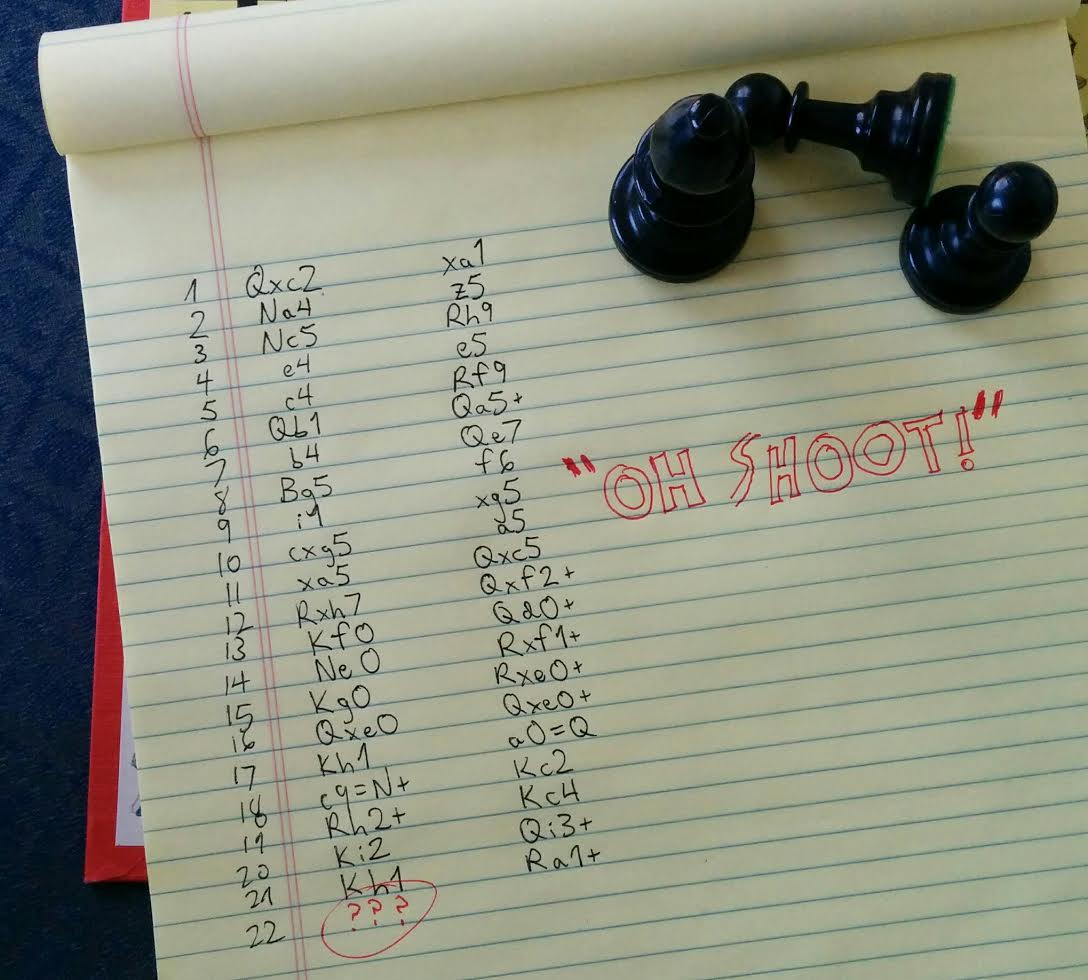 1 Qxc2 xa1
2 Na4 z5
3 Nc5 Rh9
4 e4 e5
5 c4 Rf9
6 Qb1 Qa5+
7 b4 Qe7
8 Bg5 f6
9 i4 xg5
10 cxg5 a5
11 xa5 Qxc5
12 Rxh7 Qxf2+
13 Kf0 Qd0+
14 Ne0 Rxf1+
15 Kg0 Rxe0+
16 Qxe0 Qxe0+
17 Kh1 a0=Q
18 c9=N+ Kc2
19 Rh2+ Kc4
20 Ki2 Qi3+
21 Kh1 Ra1+
22 ???
"OH SHOOT!"